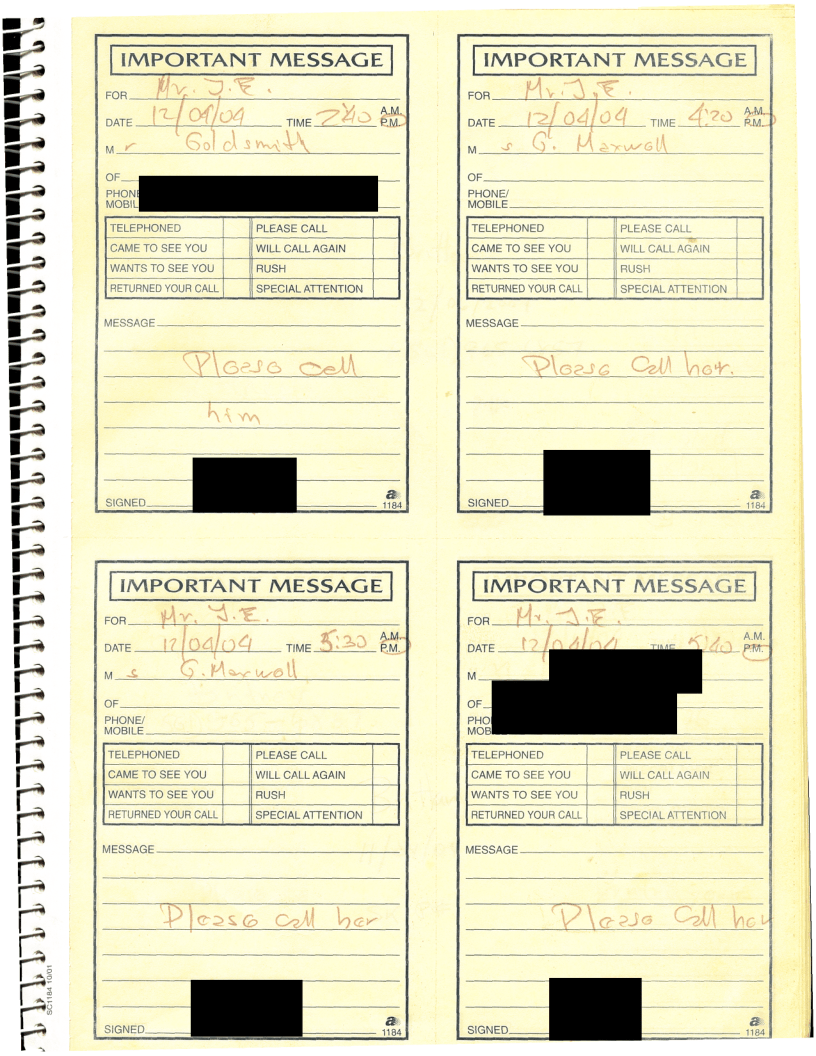 IMPORTANT MESSAGE
FOR Mr. J.E.
A.M.
DATE 12/04/04 TIME 2:40 P.M.
M r Goldsmith
OF
PHONE
MOBIL
TELEPHONED PLEASE CALL
CAME TO SEE YOU WILL CALL AGAIN
WANTS TO SEE YOU RUSH
RETURNED YOUR CALL SPECIAL ATTENTION
MESSAGE
Please call
him
SIGNED
a
1184
IMPORTANT MESSAGE
FOR Mr. J.E.
A.M.
DATE 12/04/04 TIME 4:20 P.M.
M s G. Maxwell
OF
PHONE/
MOBILE
TELEPHONED PLEASE CALL
CAME TO SEE YOU WILL CALL AGAIN
WANTS TO SEE YOU RUSH
RETURNED YOUR CALL SPECIAL ATTENTION
MESSAGE
Please Call her.
SIGNED
a
1184
IMPORTANT MESSAGE
FOR Mr. J.E.
A.M.
DATE 12/04/04 TIME 5:30 P.M.
M s G. Maxwell
OF
PHONE/
MOBILE
TELEPHONED PLEASE CALL
CAME TO SEE YOU WILL CALL AGAIN
WANTS TO SEE YOU RUSH
RETURNED YOUR CALL SPECIAL ATTENTION
MESSAGE
Please call her
SIGNED
a
1184
IMPORTANT MESSAGE
FOR Mr. J.E.
A.M.
DATE 12/04/04 TIME 5:40 P.M.
M
OF
PHO
MOB
TELEPHONED PLEASE CALL
CAME TO SEE YOU WILL CALL AGAIN
WANTS TO SEE YOU RUSH
RETURNED YOUR CALL SPECIAL ATTENTION
MESSAGE
Please Call her
SIGNED
a
1184
SC1184 10/01